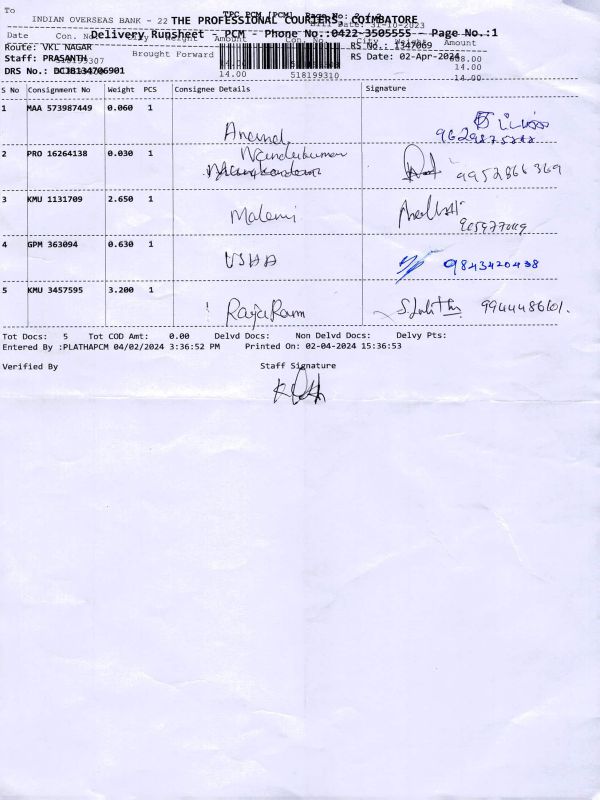 To
TPC PCM [PCM]
INDIAN OVERSEAS BANK - 22 THE PROFESSIONAL COURIERS, COIMBATORE
Bill Date: 31-10-2023
Delivery Runsheet - PCM - Phone No.:0422-3505555 Page No.:1
Date Con. No City Weight Amount Con. No. City Weight Amount
Route: VKL NAGAR RS No.: 1347069
Staff: PRASANTH Brought Forward RS Date: 02-Apr-2024
DRS No.: DCJB134706901 14.00
14.00 518199310 14.00
S No Consignment No Weight PCS Consignee Details Signature
1 MAA 573987449 0.060 1
Anand
2 PRO 16264138 0.030 1 Nandakumar
9952866369
3 KMU 1131709 2.650 1 Malani
4 GPM 363094 0.630 1 USHA 9843420438
5 KMU 3457595 3.200 1 RajaRam 9944486101.
Tot Docs: 5 Tot COD Amt: 0.00 Delvd Docs: Non Delvd Docs: Delvy Pts:
Entered By :PLATHAPCM 04/02/2024 3:36:52 PM Printed On: 02-04-2024 15:36:53
Verified By Staff Signature